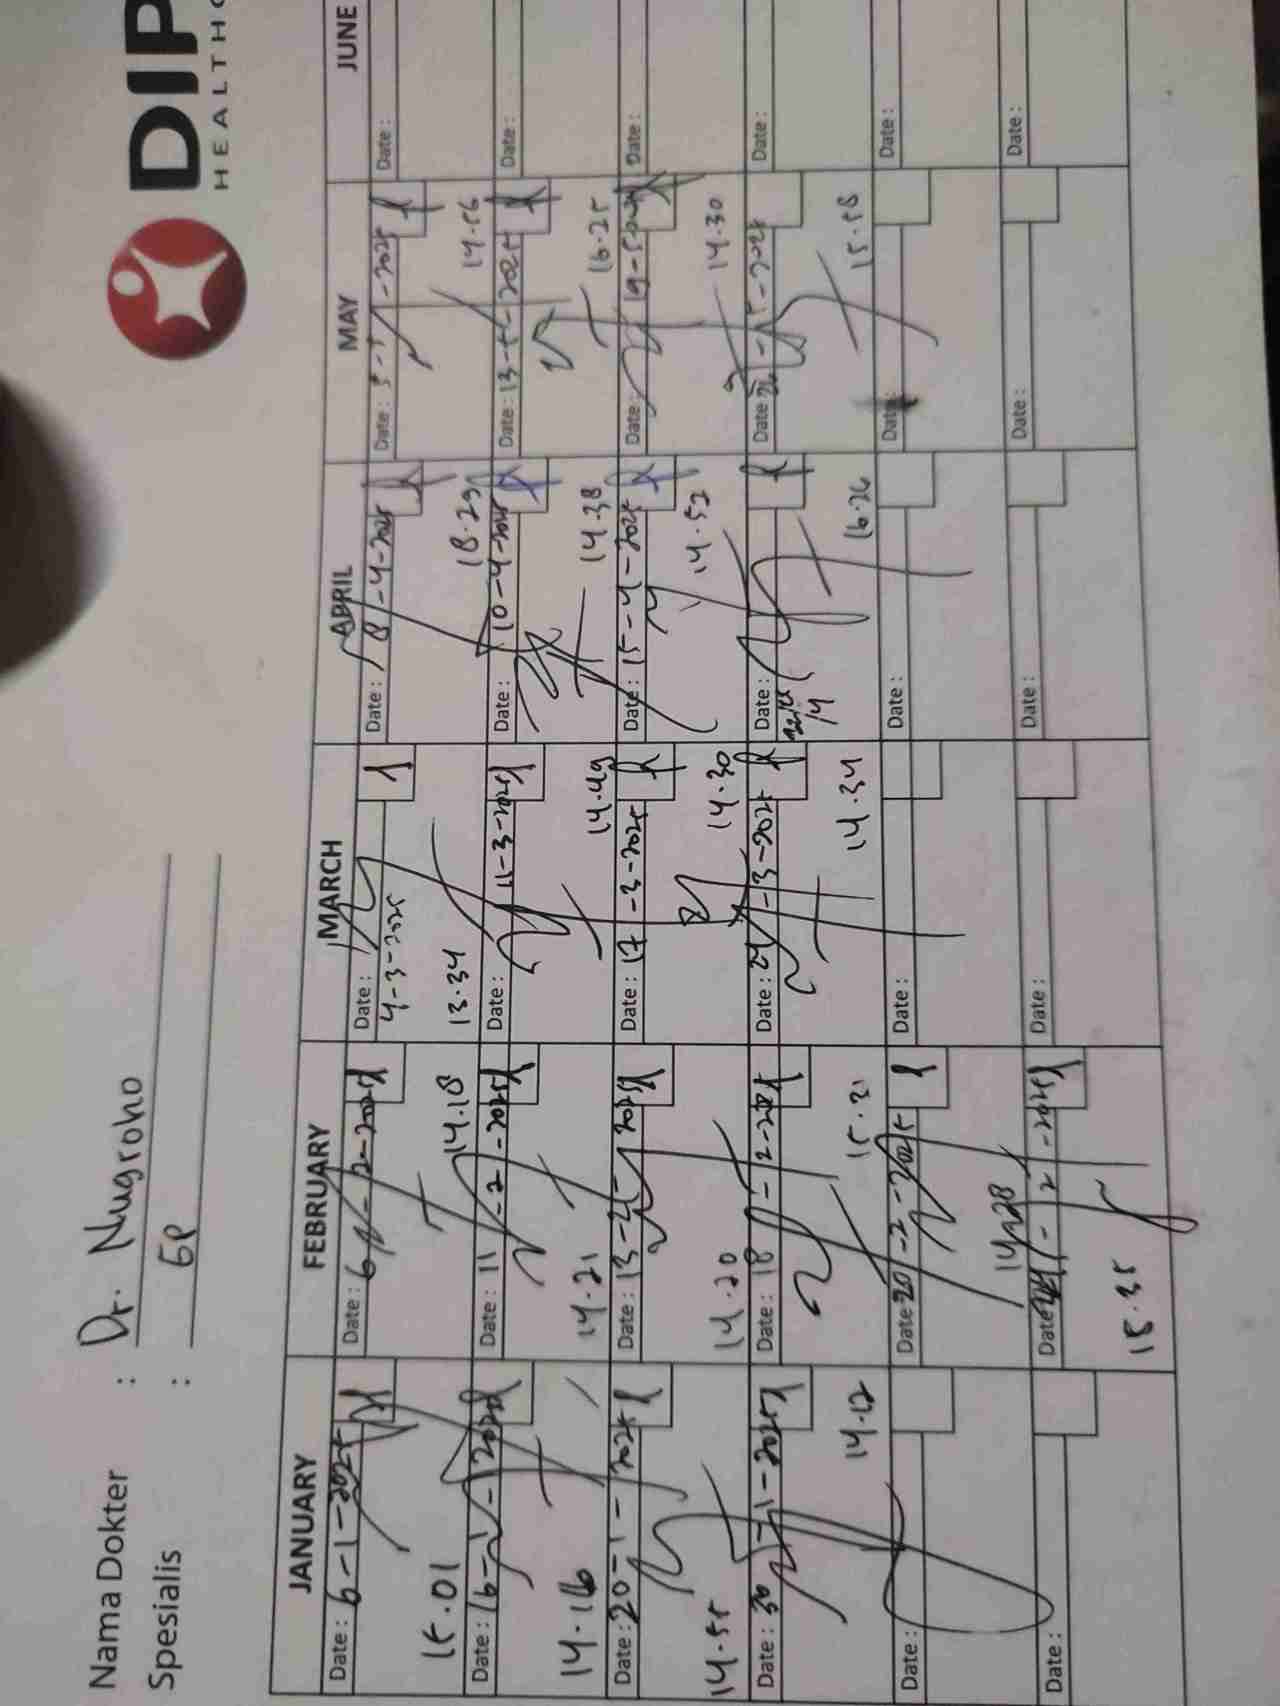 DIP
HEALTHC
Nama Dokter : Dr. Nugroho
Spesialis : GP
JANUARY FEBRUARY MARCH APRIL MAY JUNE
Date: 6-1-2025 Date: 6-2-2025 Date: 4-3-2025 Date: 8-4-2025 Date: 5-5-2025 Date:
15.01 14.18 13.34 18.29 14.56
Date: 16-1-2025 Date: 11-2-2025 Date: 11-3-2025 Date: 10-4-2025 Date: 13-5-2025 Date:
14.16 14.21 14.49 14.38 16.25
Date: 20-1-2025 Date: 13-2-2025 Date: 17-3-2025 Date: 15-4-2025 Date: 19-5-2025 Date:
14.55 14.20 14.30 14.52 14.30
Date: 30-1-2025 Date: 18-2-2025 Date: 24-3-2025 Date: Date: -5-2025 Date:
14.12 15.31 14.34 16.26 15.58
Date: Date: 20-2-2025 Date: Date: Date: Date:
14.28
Date: Date: -2-2025 Date: Date: Date: Date:
15.35